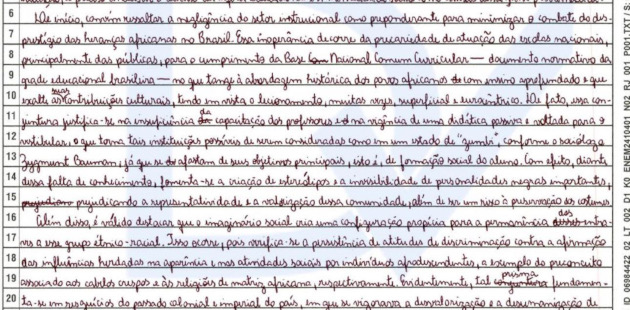 6 De início, convém ressaltar a negligência do setor instrucional como preponderante para minimizar o combate do des-
7 prestígio das heranças africanas no Brasil. Essa inoperância decorre da precariedade de atuação das escolas nacionais,
8 principalmente das públicas, para o cumprimento da Base Nacional Comum Curricular — documento normativo da
9 grade educacional brasileira — no que tange à abordagem histórica dos povos africanos com ensino aprofundado e que
10 exalte suas contribuições culturais, tendo em vista o lecionamento, muitas vezes, superficial e eurocêntrico. De fato, essa con-
11 juntura justifica-se na insuficiência da capacitação dos professores e na vigência de uma didática passiva e voltada para o
12 vestibular, o que torna tais instituições possíveis de serem consideradas como em um estado de "zumbi", conforme o sociólogo
13 Zygmunt Bauman, já que se afastam de seus objetivos principais, isto é, de formação social do aluno. Com efeito, diante
14 dessa falta de conhecimento, fomenta-se a criação de estereótipos e a invisibilidade de personalidades negras importantes,
15 prejudicando a representatividade e a valorização dessa comunidade, além de ser um risco à preservação dos costumes.
16 Além disso, é válido destacar que o imaginário social cria uma configuração propícia para a permanência dos entra-
17 ves a esse grupo étnico-racial. Isso ocorre, pois verifica-se a persistência de atitudes de discriminação contra a afirmação
18 das influências herdadas na aparência e nas atividades sociais por indivíduos afrodescendentes, a exemplo do preconceito
19 associado aos cabelos crespos e às religiões de matriz africana, respectivamente. Evidentemente, tal prisma fundamen-
20 ta-se em resquícios do passado colonial e imperial do país, em que se vigorava a desvalorização e a desumanização de
ID 06984422 02 LT 002 D1 K0 ENEM2410401 N02 RJ 001 P001.TXT / S: